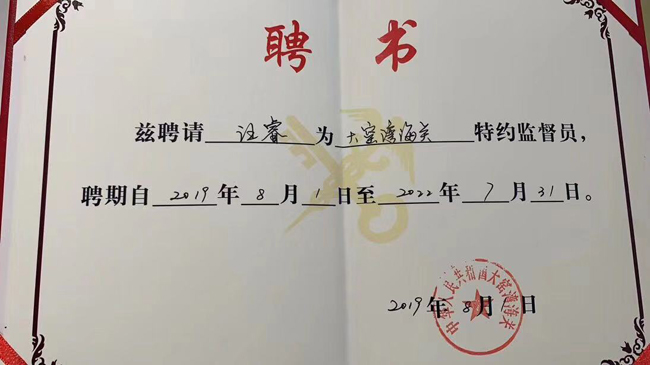 聘书
兹聘请 汪睿 为 大窑湾海关 特约监督员,
聘期自 2019 年 8 月 1 日至 2022 年 7 月 31 日。
中华人民共和国大窑湾海关
2019年8月1日